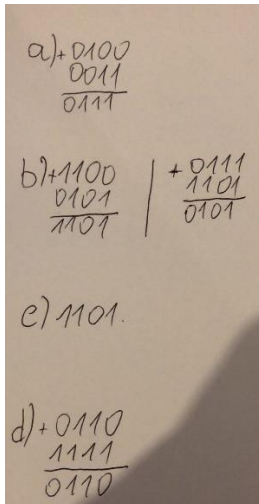 a) + 0100
0011
0111
b) + 1100
0101
1101
+ 0111
1101
0101
c) 1101.
d) + 0110
1111
0110